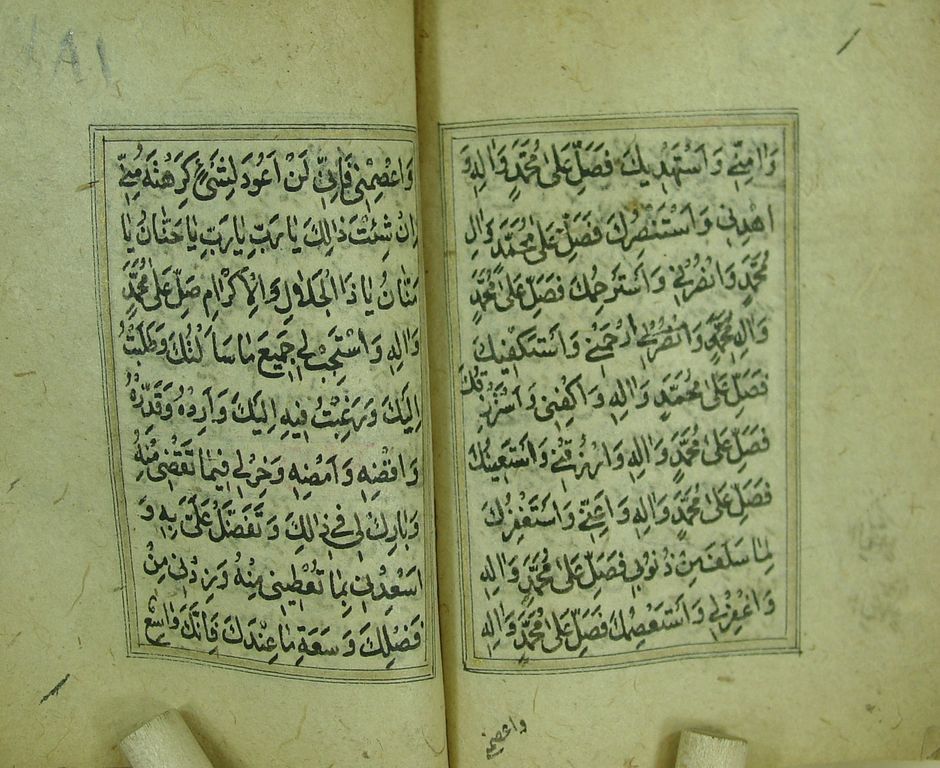 وَاٰمِنّي وَاَسْتَهْدِيكَ فَصَلِّ عَلىٰ مُحَمَّدٍ وَاٰلِهِ وَ
اهْدِنى وَاَسْتَنْصِرُكَ فَصَلِّ عَلىٰ مُحَمَّدٍ وَاٰلِ
مُحَمَّدٍ وَانْصُرْنى وَاَسْتَرْحِمُكَ فَصَلِّ عَلىٰ مُحَمَّدٍ
وَاٰلِ مُحَمَّدٍ وَانْصُرْنى ارْحَمْنى وَاَسْتَكْفِيكَ
فَصَلِّ عَلىٰ مُحَمَّدٍ وَاٰلِهِ وَاكْفِنى وَاَسْتَرْزِقُكَ
فَصَلِّ عَلىٰ مُحَمَّدٍ وَاٰلِهِ وَارْزُقْنى وَاَسْتَعينُكَ
فَصَلِّ عَلىٰ مُحَمَّدٍ وَاٰلِهِ وَاَعِنّى وَاَسْتَغْفِرُكَ
لِمٰا سَلَفَ مِنْ ذُنُوبى فَصَلِّ عَلىٰ مُحَمَّدٍ وَاٰلِهِ
وَاغْفِرْلى وَاَسْتَعْصِمُكَ فَصَلِّ عَلىٰ مُحَمَّدٍ وَاٰلِهِ
واعصمنى
١٨١
وَاعْصِمْنى فَاِنّى لَنْ اَعُودَ لِشَىْءٍ كَرِهْتَهُ مِنّى
اِنْ شِئْتَ ذٰلِكَ يٰا رَبِّ يٰا رَبِّ يٰا حَنّٰانُ يٰا
مَنّٰانُ يٰا ذَا الْجَلٰالِ وَالْاِكْرٰامِ صَلِّ عَلىٰ مُحَمَّدٍ
وَاٰلِهِ وَاسْتَجِبْ لى جَميعَ مٰا سَاَلْتُكَ وَطَلَبْتُ
اِلَيْكَ وَرَغِبْتُ فيهِ اِلَيْكَ وَاَرِدْهُ وَقَدِّرْهُ
وَاقْضِهِ وَاَمْضِهِ وَخِرْلى فيمٰا تَقْضى مِنْهُ
وَبٰارِكْ لى فى ذٰلِكَ وَتَفَضَّلْ عَلَىَّ بِهِ وَ
اَسْعِدْنى بِمٰا تُعْطينى مِنْهُ وَزِدْنى مِنْ
فَضْلِكَ وَسَعَةِ مٰا عِنْدَكَ فَاِنَّكَ وٰاسِعٌ